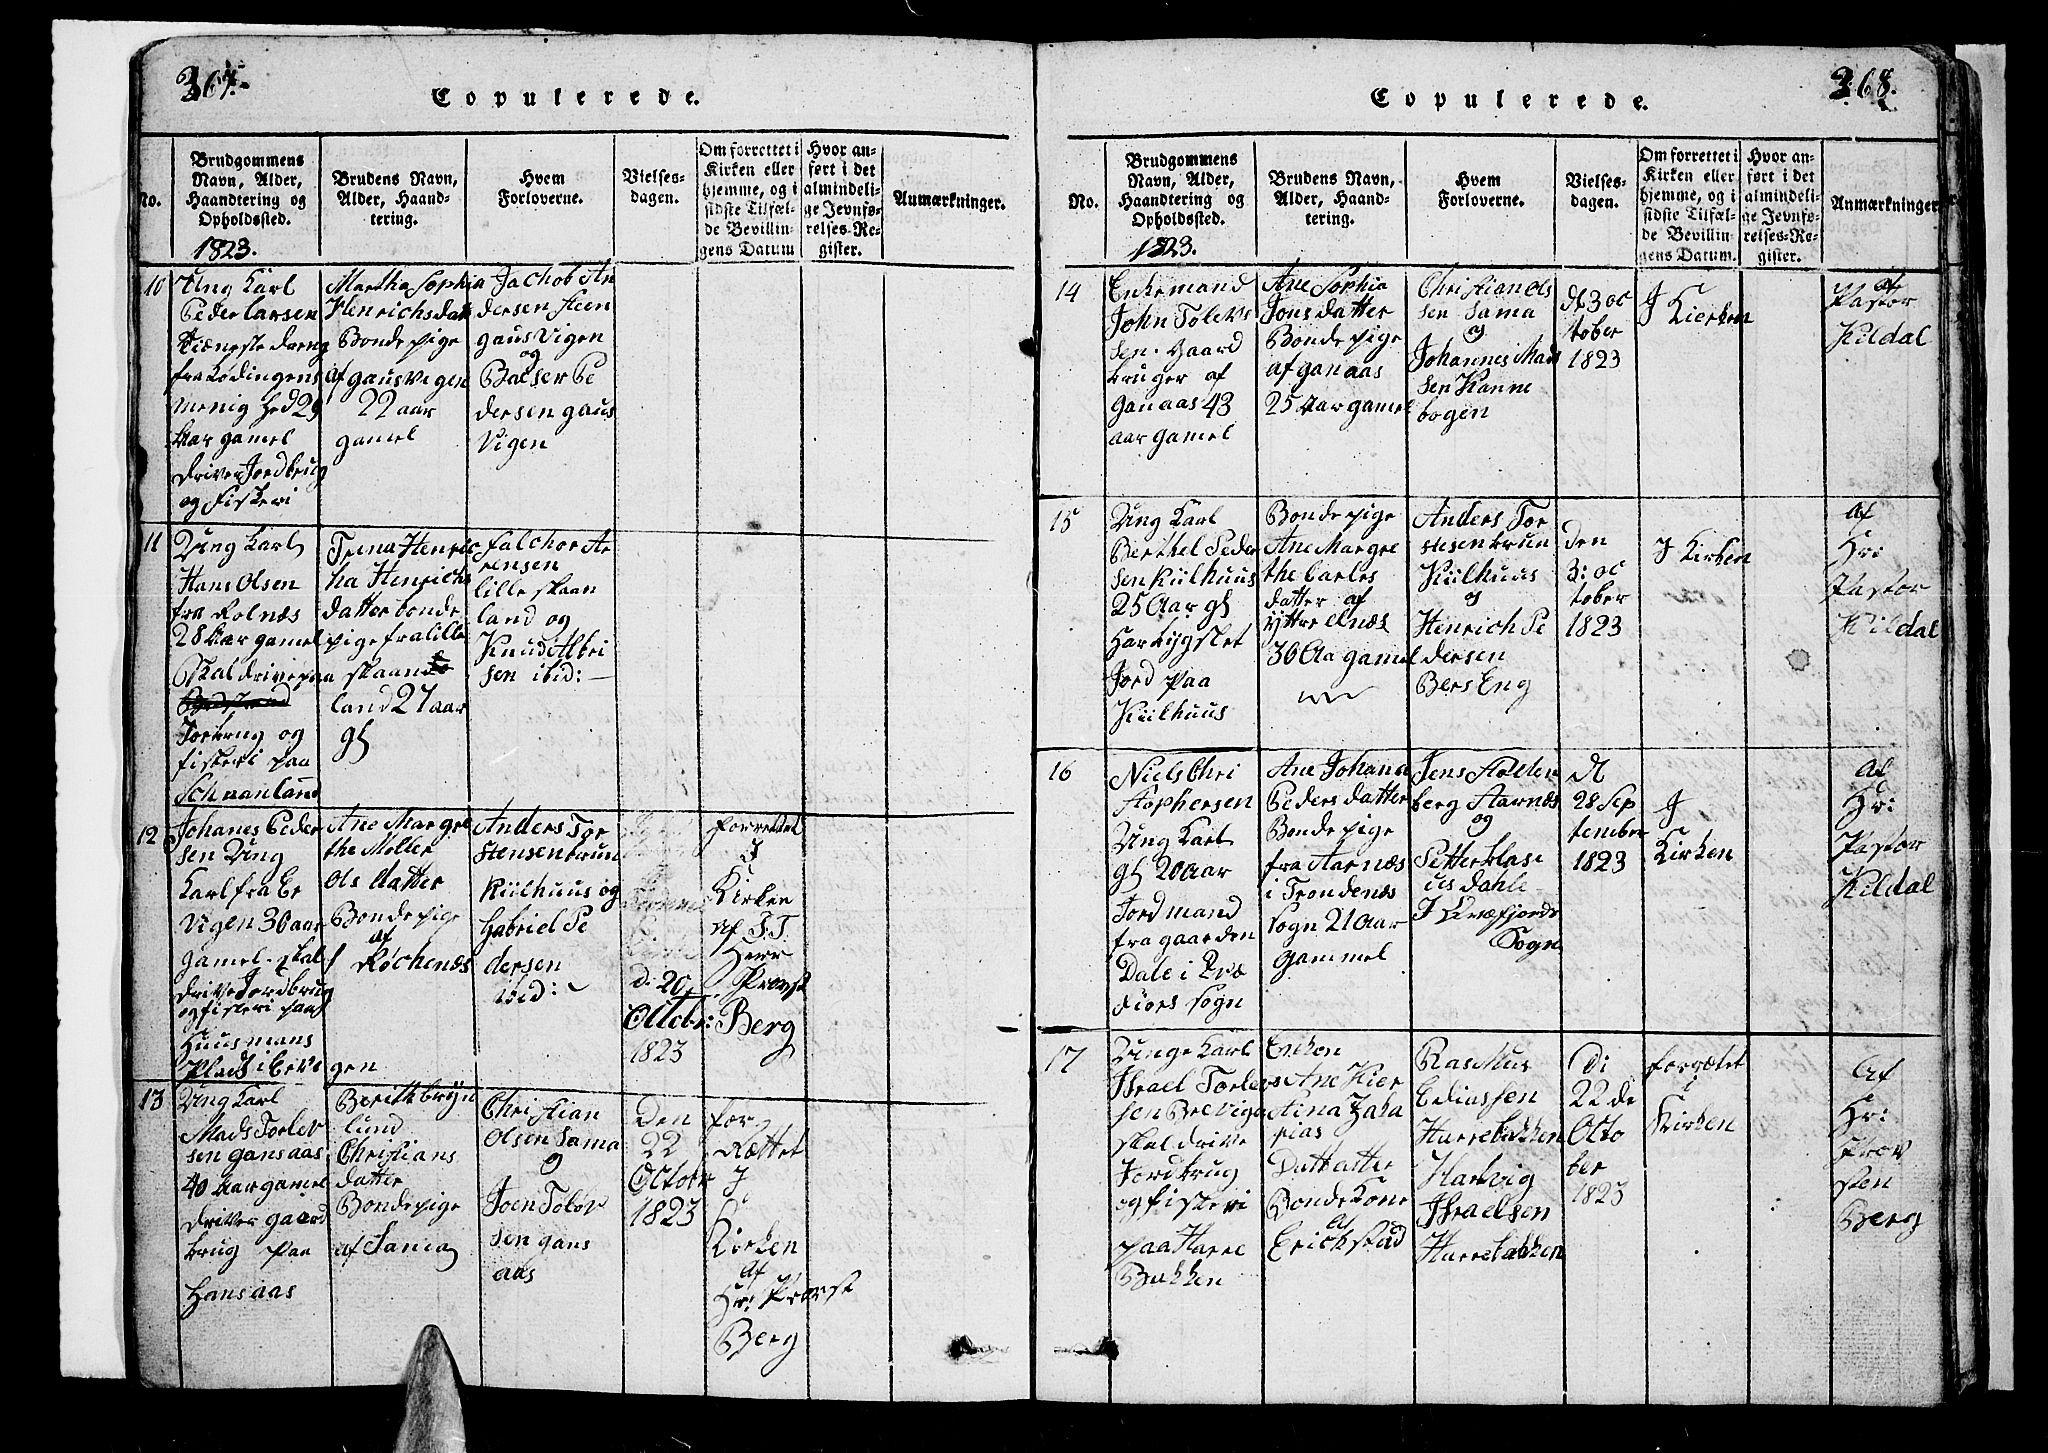 367.
Copulerede.
No.
Brudgommens
Navn, Alder,
Haandtering og
Opholdssted.
1823.
Brudens Navn,
Alder, Haand-
tering.
Hvem
Forloverne.
Vielses-
dagen.
Om forrettet i
Kirken eller
hjemme, og i
sidste Tilfæl-
de Bevillin-
gens Datum
Hvor an-
ført i det
almindeli-
ge Jevnfø-
relses-Re-
gister.
Anmærkninger.
10
Ung Karl
Peder Larsen
tieneste dreng
fra Lødingens
menig hed 29
Aar gamel
driver Jordbrug
og Fiskeri
Martha Sophia
Henrichsdat
Bonde pige
af gausvigen
22 aar
gamel
Jachob An
dersen
gausVigen
og
Balser Pe
dersen gaus
Vigen
11
Ung Karl
Hans Olsen
fra Rolnæs
28 Aar gamel
Skal drive paa
Jorbrug og
fiskeri paa
Schaanland
Trina Henric
ha Henrichs
datter bonde
pige fra lille
skaan
land 27 aar
gl
falchor Ar
rensen
lille skaan
land og
Knud Albri
sen ibid:
12
Johanes Peder
sen Ung
Karl fra Er
Vigen 30 aar
gamel. skal
drive Jordbrug
og fiskeri paa
Huusmans
Plads i Ervi
gen
Ane Margre
the Moller
Ols datter
Bonde pige
af
Røchenæs
Anders Tor
stensen brun
Kiilhuus og
Gabriel Pe
dersen
ibid:
d: 20
Octobr:
1823
forrettet
I
Kirken
af S.T.
Herr
Provst
Berg
13
Ung Karl
Mads Torlev
sen gansaas
40 Aar gamel
driver gaard
brug paa
Hansaas
Berith bryn
lund
Christians
datter
Bonde pige
af Sama
Christian
Olsen Sama
og
Joen Tolov
sen gans
aas
Den
22
Octobr
1823
for
Rættet
I
Kirken
af
Hr: Provst
Berg
368.
Copulerede.
No.
Brudgommens
Navn, Alder,
Haandtering og
Opholdssted.
1823.
Brudens Navn,
Alder, Haand-
tering.
Hvem
Forloverne.
Vielses-
dagen.
Om forrettet i
Kirken eller
hjemme, og i
sidste Tilfæl-
de Bevillin-
gens Datum.
Hvor an-
ført i det
almindeli-
ge Jevnfø-
relses-Re-
gister.
Anmærkninger
14
Enkemand
John Tolevs
sen. Gaard
bruger af
Ganaas 43
aar gamel
Ane Sophia
Jons datter
Bonde pige
af ganaas
25 Aar gamel
Christian Ols
sen Sama
og
Johannes Mads
sen Kanne
bogen
d 3 oc
tober
1823
I
Kierken
af
Pastor
Kildal
15
Ung Karl
Berthel Peder
sen Kiilhuus
25 Aar gl
Har bygslet
Jord paa
Kiilhuus
Bonde pige
Ane Margre
the Carles
datter af
Yttre elnæs
30 Aa gamel
Anders Tor
stesen brun
Kiilhuus
og
Henrich Pe
dersen
Bers Eng
den
3: oc
tober
1823
I Kirken
af
Hr:
Pastor
Kildal
16
Niels Chri
stophersen
Ung Karl
gl 20 aar
Jordmand
fra gaarden
Dale i Qvæ
fiors sogn
Ane Johana
Peders datter
Bonde pige
fra Aarnæs
i Trondenæs
sogn 21 Aar
gammel
Jens Holden
berg Aarnæs
og
Petter klasi
us dahle
I Kvæfjords
Sogn
d
28 Sep
tember
1823
I
Kirken
af
Hr:
Pastor
Kildal
17
Unge Karl
Israel Torlevs
sen Breviga
skal drive
Jordbrug
og fiskeri
paa Harre
Bakken
Enken
Ane Kier
stina Zaka
rias
Dattatter
Bonde Kone
af
Erickstad
Rasmus
Eliassen
Harrebakken
Hartvig
Israelsen
Harrebakken
Di
22 de
Octo
ber
1823
forrættet
i
Kirken
af
Hr:
Prov
sten
Berg